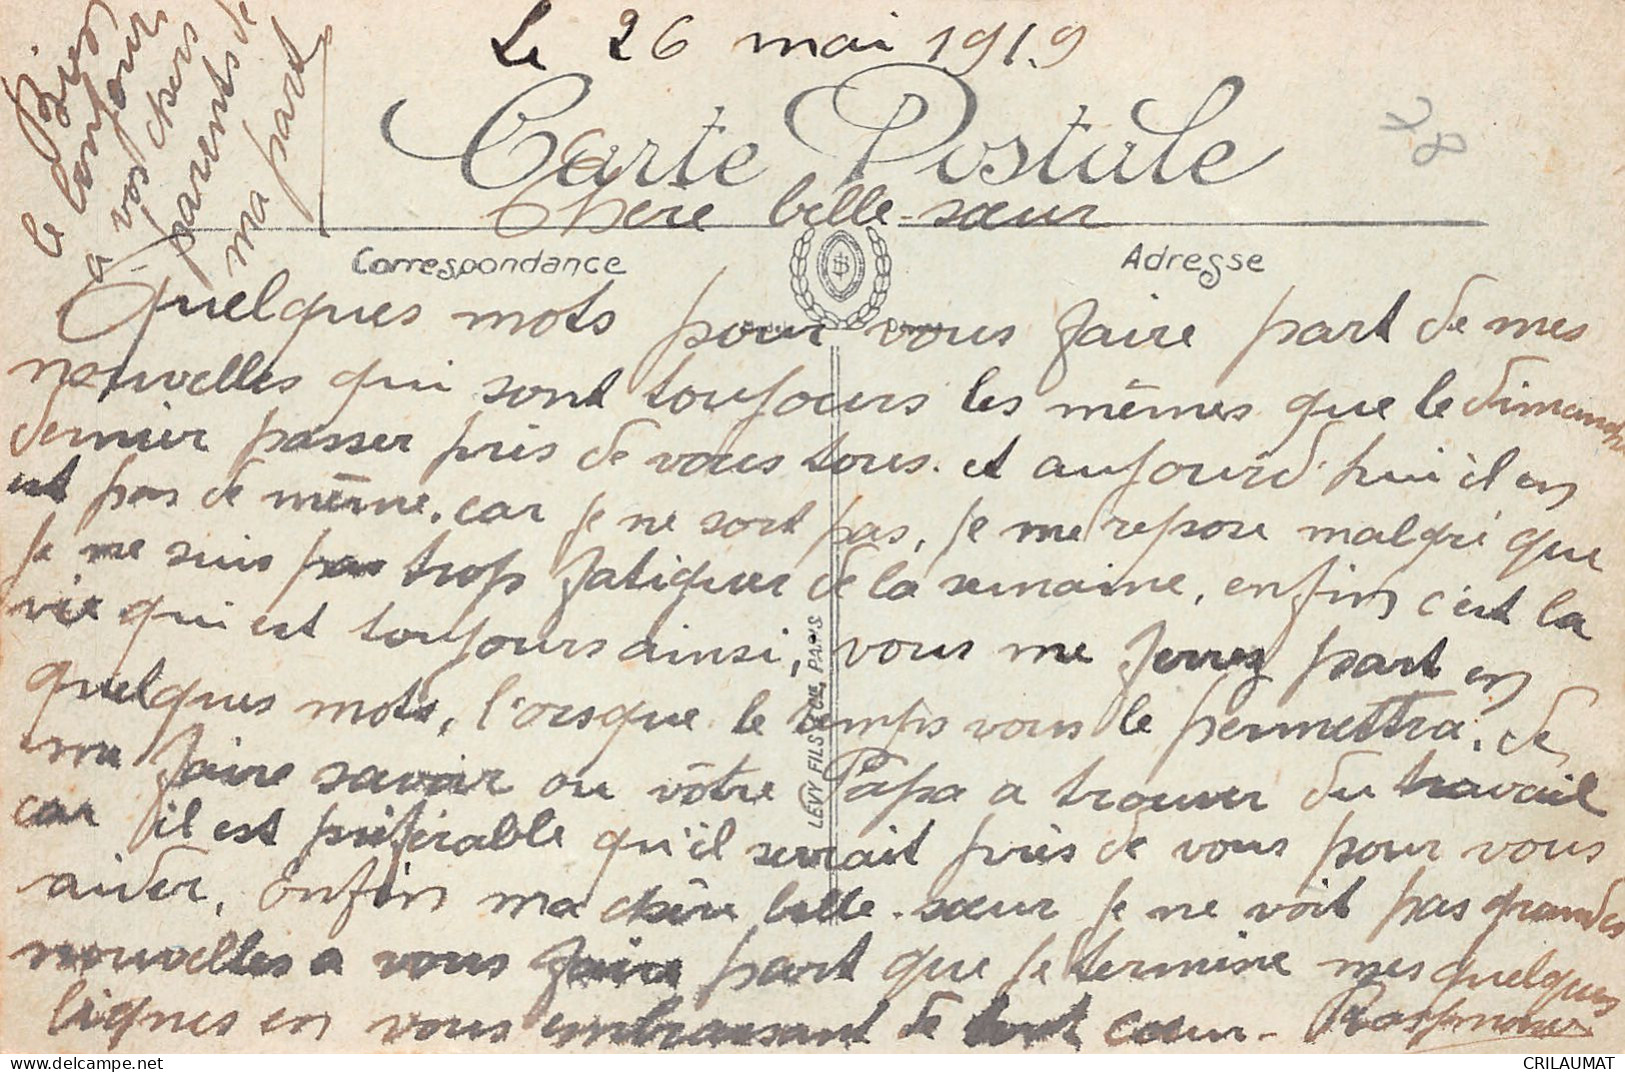 Le 26 mai 1919
Bien
le bonjour
à vos chers
parents de
ma part
Carte Postale
Chère belle-sœur
Correspondance
Adresse
Quelques mots pour vous faire part de mes
nouvelles qui sont toujours les mêmes que le dimanche
dernier passer près de vous tous. et aujourd'hui il en
est pas de même. car je ne sort pas, je me repose malgré que
je me suis pas trop fatiguer de la semaine, enfin c'est la
vie qui est toujours ainsi, vous me ferrez part en
quelques mots, l'orsque le temps vous le permettra. de
me faire savoir ou vôtre Papa a trouver du travail
car il est préférable qu'il serrait près de vous pour vous
aider, enfin ma chère belle-sœur je ne voit pas grandes
nouvelles a vous faire part que je termine mes quelques
lignes en vous embrassant de tout cœur-
LEVY FILS & CIE, PARIS
CRILAUMAT